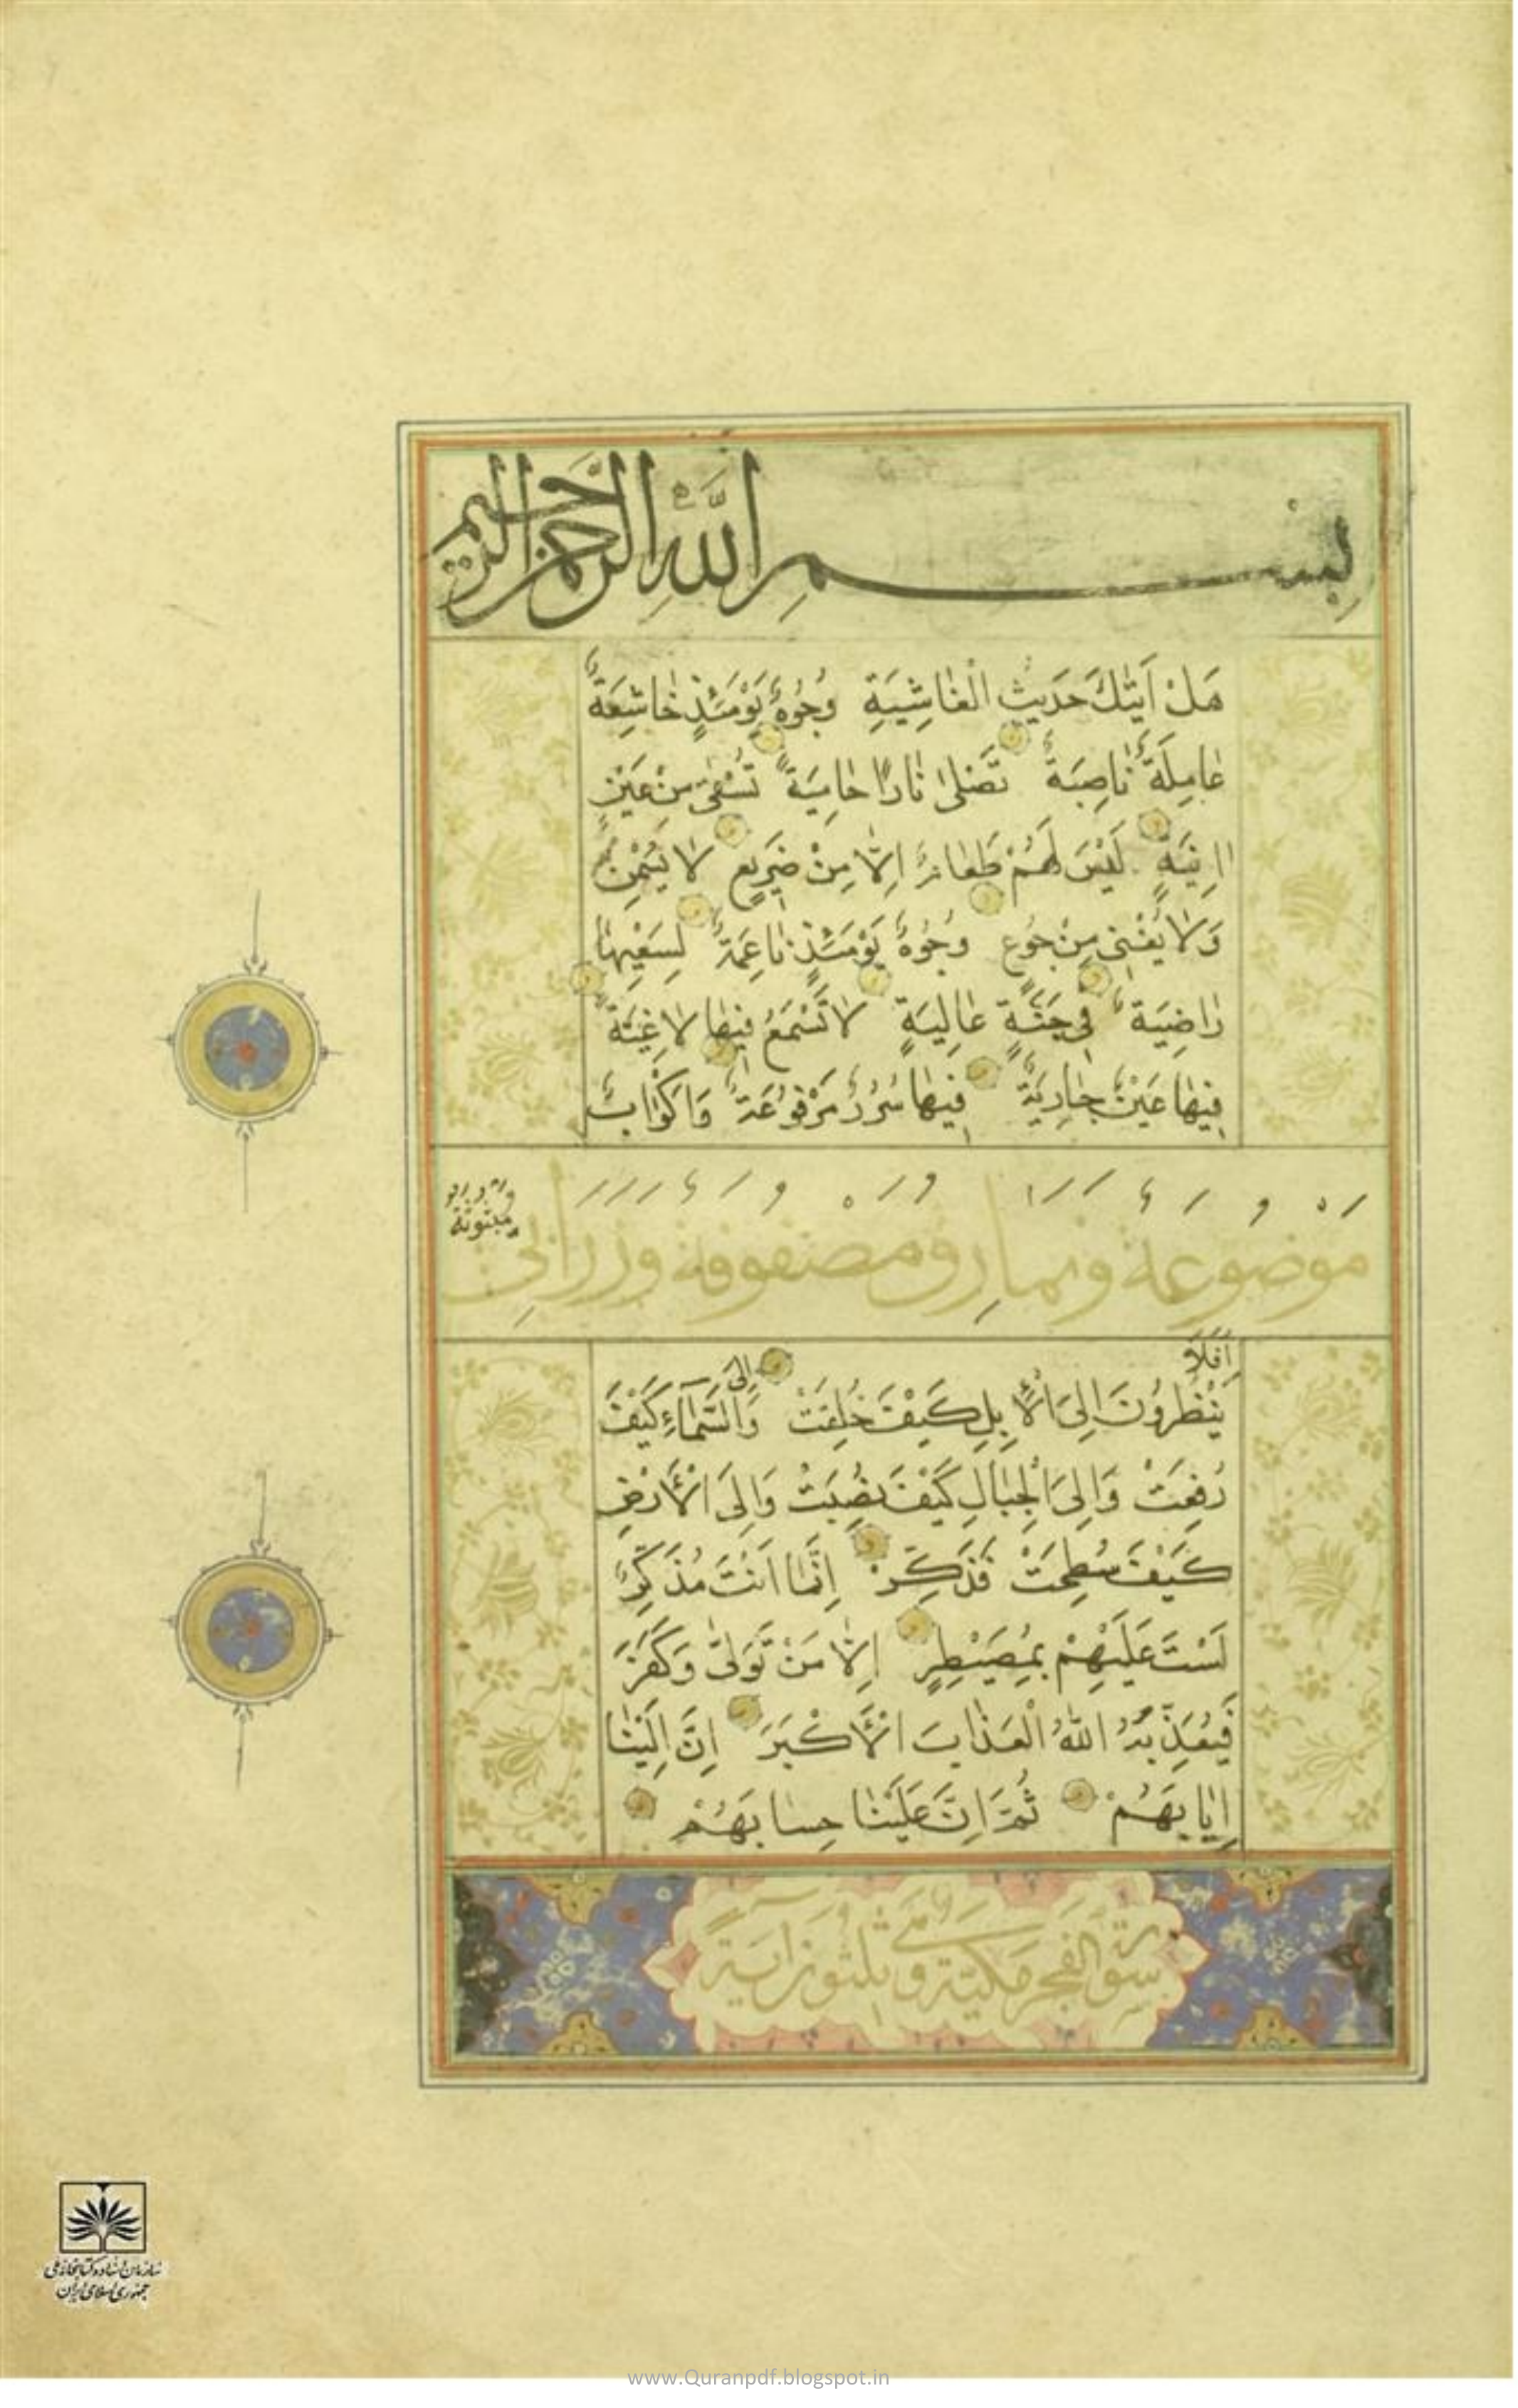 بِسْمِ اللَّهِ الرَّحْمٰنِ الرَّحِيمِ
هَلْ اَتٰيكَ حَدِيثُ الْغَاشِيَةِ وُجُوهٌ يَوْمَئِذٍ خَاشِعَةٌ
عَامِلَةٌ نَاصِبَةٌ تَصْلٰى نَارًا حَامِيَةً تُسْقٰى مِنْ عَيْنٍ
اٰنِيَةٍ لَيْسَ لَهُمْ طَعَامٌ اِلَّا مِنْ ضَرِيعٍ لَا يُسْمِنُ
وَلَا يُغْنِى مِنْ جُوعٍ وُجُوهٌ يَوْمَئِذٍ نَاعِمَةٌ لِسَعْيِهَا
رَاضِيَةٌ فِى جَنَّةٍ عَالِيَةٍ لَا تَسْمَعُ فِيهَا لَاغِيَةً
فِيهَا عَيْنٌ جَارِيَةٌ فِيهَا سُرُرٌ مَرْفُوعَةٌ وَاَكْوَابٌ
موضوعة ونمارق مصفوفة وزرابى
مبثوثة
اَفَلَا
يَنْظُرُونَ اِلَى الْاِبِلِ كَيْفَ خُلِقَتْ وَاِلَى السَّمَاءِ كَيْفَ
رُفِعَتْ وَاِلَى الْجِبَالِ كَيْفَ نُصِبَتْ وَاِلَى الْاَرْضِ
كَيْفَ سُطِحَتْ فَذَكِّرْ اِنَّمَا اَنْتَ مُذَكِّرٌ
لَسْتَ عَلَيْهِمْ بِمُصَيْطِرٍ اِلَّا مَنْ تَوَلّٰى وَكَفَرَ
فَيُعَذِّبُهُ اللّٰهُ الْعَذَابَ الْاَكْبَرَ اِنَّ اِلَيْنَا
اِيَابَهُمْ ثُمَّ اِنَّ عَلَيْنَا حِسَابَهُمْ
سورة الفجر مكية وهى ثلثون اية
سازمان اسناد و کتابخانه ملی
جمهوری اسلامی ایران
www.Quranpdf.blogspot.in